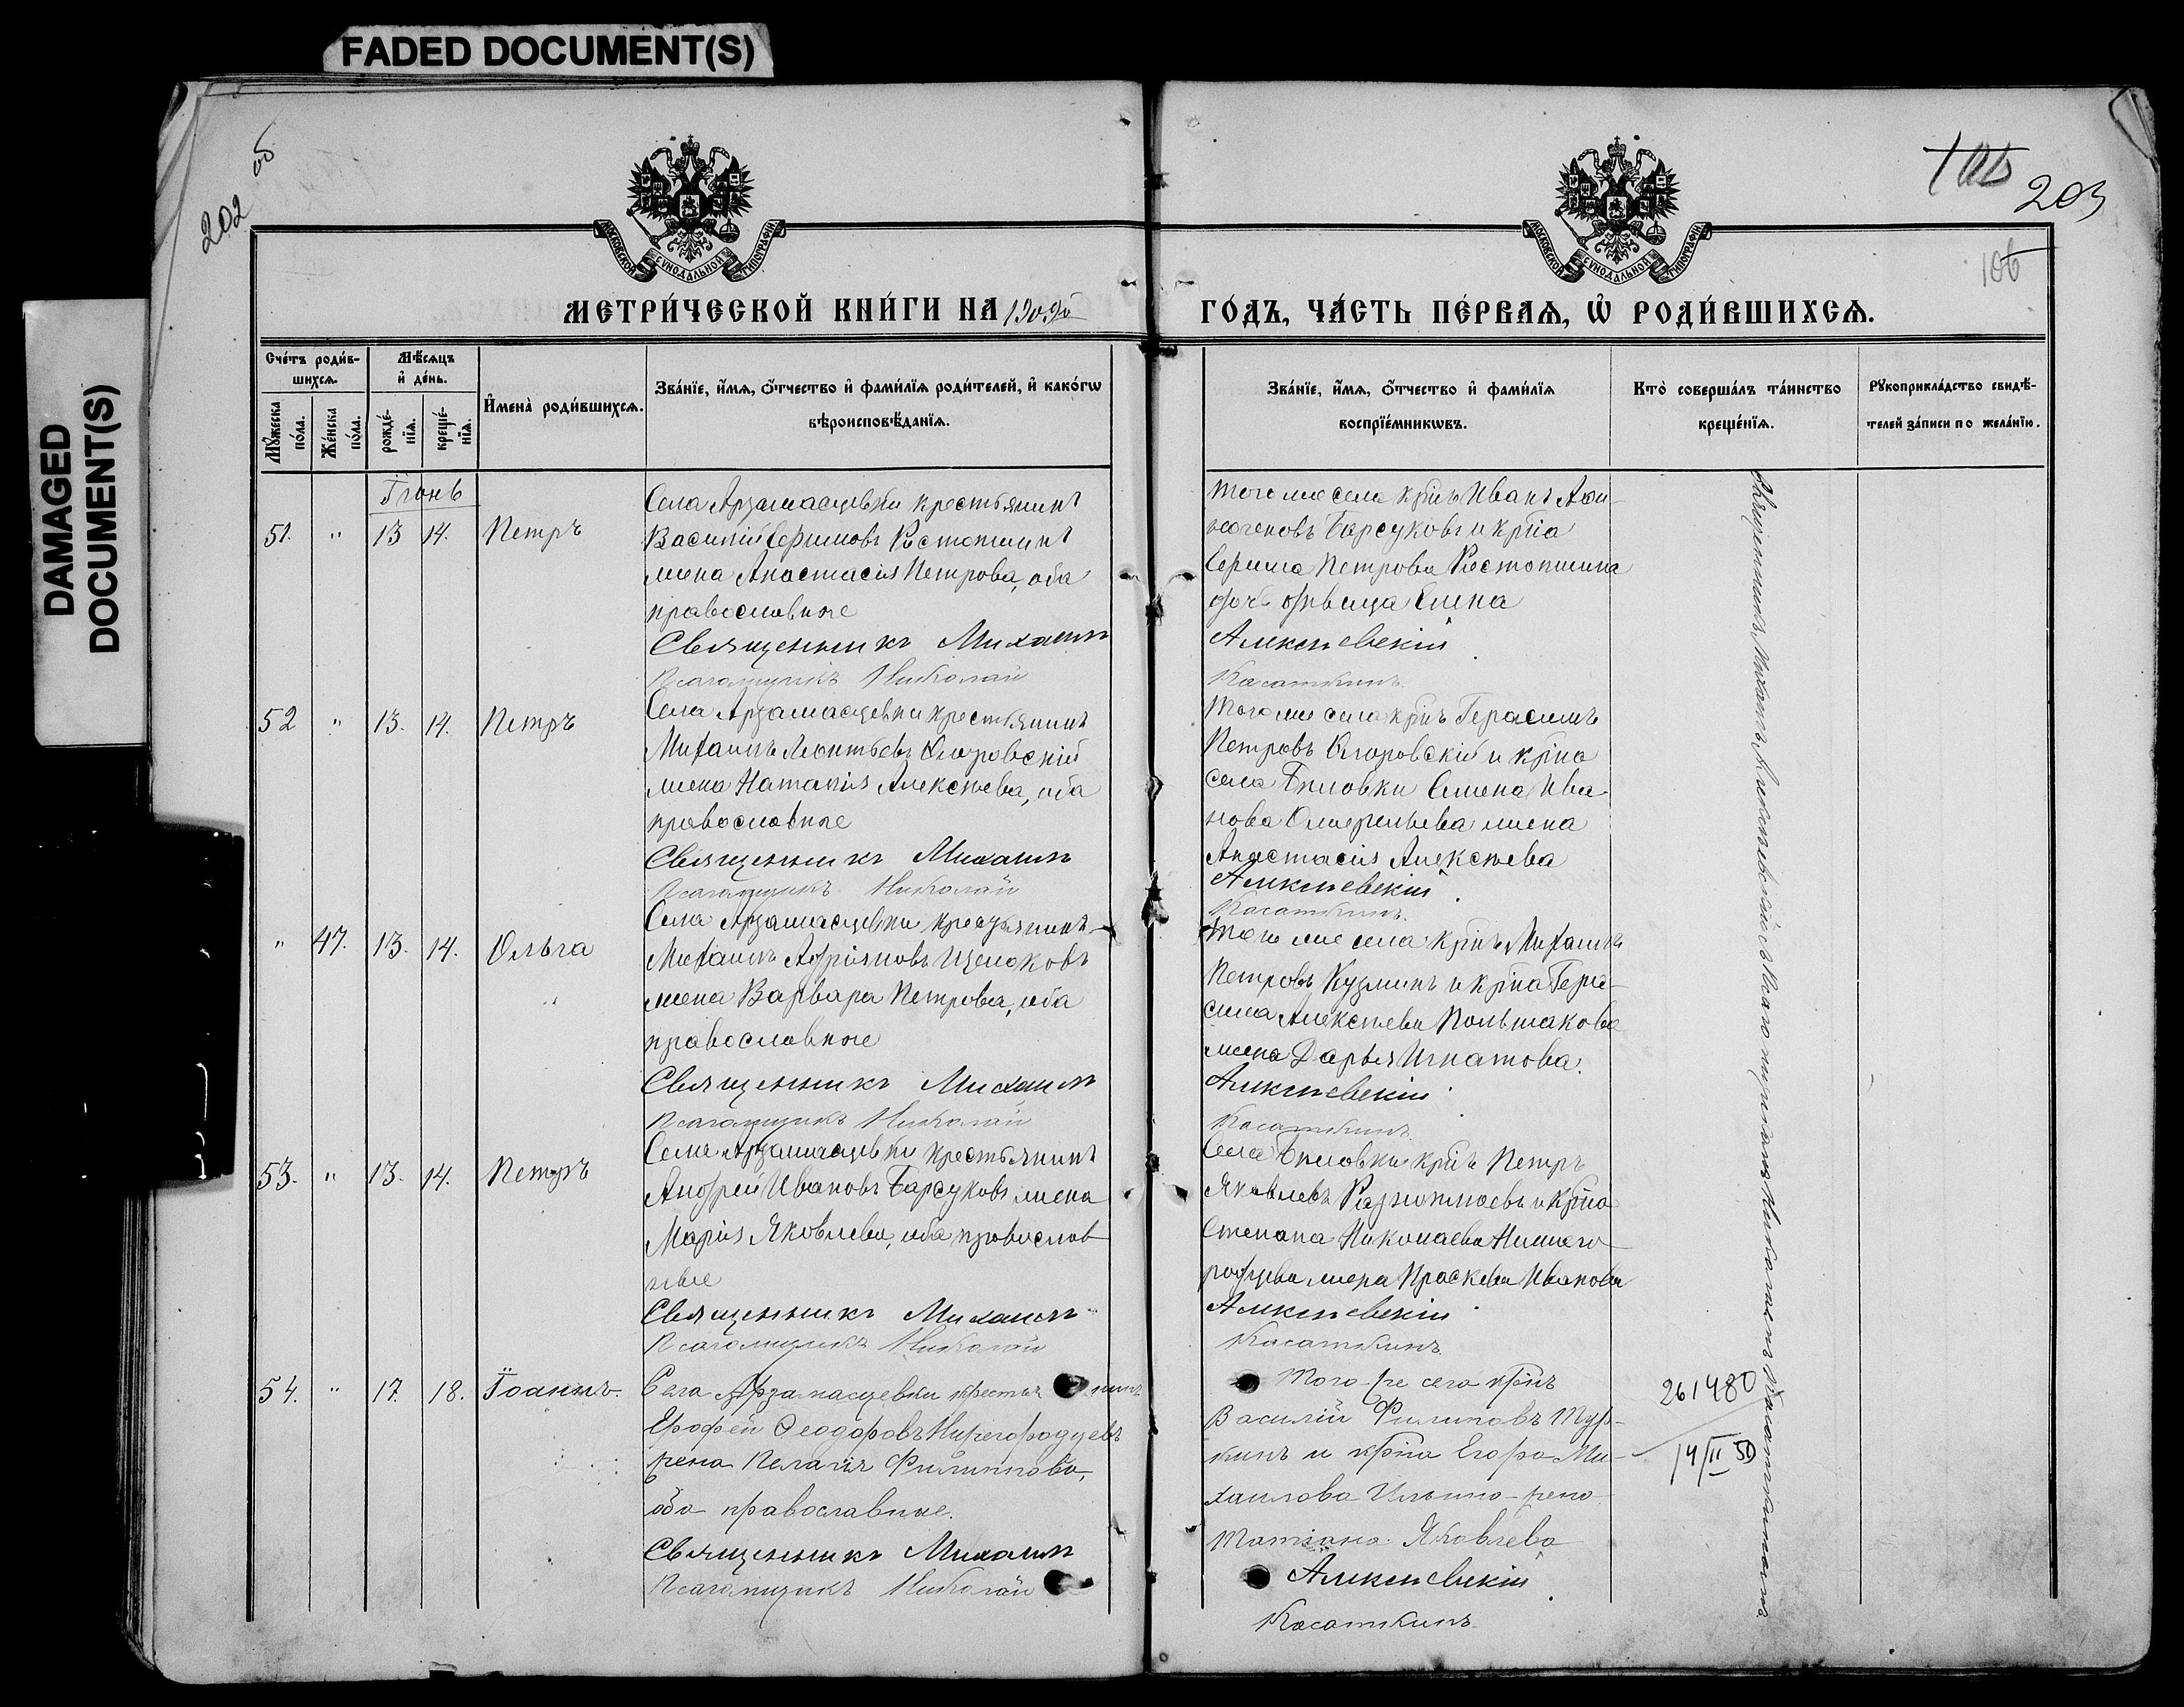 FADED DOCUMENT(S)
DAMAGED
DOCUMENT(S)
202
об
203
106
МОСКОВСКОЙ СѴНОДАЛЬНОЙ ТИПОГРАФІИ
МОСКОВСКОЙ СѴНОДАЛЬНОЙ ТИПОГРАФІИ
МЕТРИ́ЧЕСКОЙ КНИ́ГИ НА
ГО́ДЪ, ЧА́СТЬ ПЕ́РВАѦ, Ѡ҆ РОДИ́ВШИХСѦ.
Сче́тъ роди́в-
шихсѧ.
Мѣ́сѧцъ
и҆ де́нь.
Мꙋ́жеска
по́ла.
Же́нска
по́ла.
рожде́-
нїѧ.
креще́-
нїѧ.
И҆мена̀ роди́вшихсѧ.
Зва́нїе, и҆́мѧ, ѻ҆́тчество и҆ фами́лїѧ роди́телей, и҆ како́гѡ
вѣроисповѣ́данїѧ.
Зва́нїе, и҆́мѧ, ѻ҆́тчество и҆ фами́лїѧ
воспрїе́мникѡвъ.
Кто̀ соверша́лъ та́инство
креще́нїѧ.
Рꙋкоприкла́дство свидѣ́-
телей за́писи по жела́нїю.
Іюнь
51. " 13 14. Петръ
Села Арзамасцевки крестьянинъ
Василій Ефимовъ Ростопшинъ
жена Анастасія Петрова, оба
православные
Священникъ Михаилъ
Псаломщикъ Николай
того же села крнъ Иванъ
Барсуковъ и крна
Петрова Ростопшина
дочь дѣвица Елена
Алексѣевскій
Касаткинъ
52 " 13. 14. Петръ
Села Арзамасцевки крестьянинъ
Михаилъ Леонтьевъ
жена Наталія Алексѣева, оба
православные
Священникъ Михаилъ
Псаломщикъ Николай
Того же села крнъ Герасимъ
Петровъ и крна
села Бѣловки Ива-
нова жена
Анастасія Алексѣева
Алексѣевскій
Касаткинъ.
" 47. 13. 14. Ольга
Села Арзамасцевки крестьянинъ
Михаилъ Адріяновъ Щелоковъ
жена Варвара Петрова, оба
православные
Священникъ Михаилъ
Псаломщикъ Николай
того же села крнъ Михаилъ
Петровъ Кузминъ и крна Гера-
сима Алексѣева
жена Дарья Игнатова.
Алексѣевскій
Касаткинъ
53. " 13. 14. Петръ
Села Арзамасцевки крестьянинъ
Андрей Ивановъ Барсуковъ жена
Марія Яковлева, оба православ
ные
Священникъ Михаилъ
Псаломщикъ Николай
Села Бѣловки крнъ Петръ
Яковлевъ и крна
Степана Николаева Нижего-
родцева жена Праскева Иванова
Алексѣевскій
Касаткинъ
54. " 17. 18. Іоаннъ.
Села Арзамасцевки крестья нинъ
Ерофей Ѳеодоровъ Нижегородцевъ
жена Пелагія Филиппова,
оба православные.
Священникъ Михаилъ
Псаломщикъ Николай
Того же села крнъ
Василій Филиповъ Тур-
кинъ и крна Егора Ми-
хаилова Ильина жена
Татіана Яковлева
Алексѣевскій
Касаткинъ
261480
14/II 50